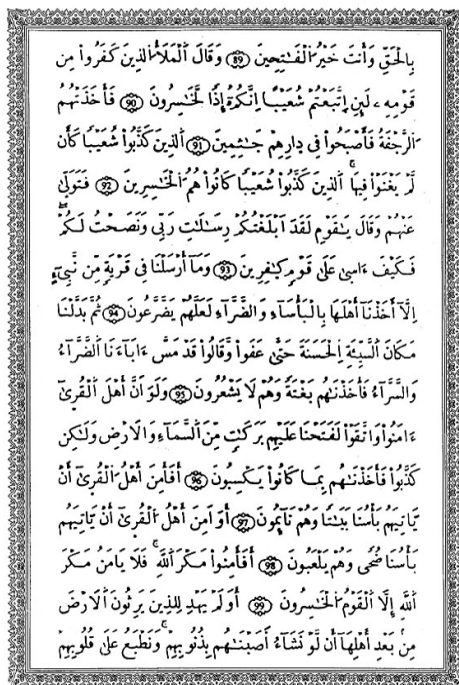 بِالْحَقِّ وَأَنتَ خَيْرُ الْفَٰتِحِينَ 89 وَقَالَ الْمَلَأُ الذِينَ كَفَرُواْ مِن
قَوْمِهِۦ لَئِنِ اِتَّبَعْتُمْ شُعَيْبًا اِنَّكُمُۥٓ إِذًا لَّخَٰسِرُونَ 90 فَأَخَذَتْهُمُ
الرَّجْفَةُ فَأَصْبَحُواْ فِى دِارِهِمْ جَٰثِمِينَ 91 اَلذِينَ كَذَّبُواْ شُعَيْبًا كَأَن
لَّمْ يَغْنَوْاْ فِيهَا اَلذِينَ كَذَّبُواْ شُعَيْبًا كَانُواْ هُمُ الْخَٰسِرِينَ 92 فَتَوَلَّىٰ
عَنْهُمْ وَقَالَ يَٰقَوْمِ لَقَدَ اَبْلَغْتُكُمْ رِسَٰلَٰتِ رَبِّى وَنَصَحْتُ لَكُمْ
فَكَيْفَ ءَاسِىٰ عَلَىٰ قَوْمٍ كٰ۪فِرِينَ 93 وَمَآ أَرْسَلْنَا فِى قَرْيَةٍ مِّن نَّبِىٓءٍ
اِلَّآ أَخَذْنَآ أَهْلَهَا بِالْبَأْسَآءِ وَالضَّرَّآءِ لَعَلَّهُمْ يَضَّرَّعُونَ 94 ثُمَّ بَدَّلْنَا
مَكَانَ اَلسَّيِّئَةِ اِلْحَسَنَةَ حَتَّىٰ عَفَواْ وَّقَالُواْ قَدْ مَسَّ ءَابَآءَنَا اَلضَّرَّآءُ
وَالسَّرَّآءُ فَأَخَذْنَٰهُم بَغْتَةً وَهُمْ لَا يَشْعُرُونَ 95 وَلَوَ اَنَّ أَهْلَ اَلْقُرَىٰٓ
ءَامَنُواْ وَاتَّقَوْاْ لَفَتَحْنَا عَلَيْهِم بَرَكَٰتٍ مِّنَ اَلسَّمَآءِ وَالَارْضِ وَلَٰكِن
كَذَّبُواْ فَأَخَذْنَٰهُم بِمَا كَانُواْ يَكْسِبُونَ 96 أَفَأَمِنَ أَهْلُ اَلْقُرَىٰٓ أَنْ
يَّاتِيَهُم بَأْسُنَا بَيَٰتًا وَهُمْ نَآئِمُونَ 97 أَوَ اَمِنَ أَهْلُ اَلْقُرَىٰٓ أَنْ يَّاتِيَهُم
بَأْسُنَا ضُحًى وَهُمْ يَلْعَبُونَ 98 أَفَأَمِنُواْ مَكْرَ اَللَّهِ فَلَا يَامَنُ مَكْرَ
اَللَّهِ إِلَّا اَلْقَوْمُ اُلْخَٰسِرُونَ 99 أَوَلَمْ يَهْدِ لِلذِينَ يَرِثُونَ اَلَارْضَ
مِنۢ بَعْدِ أَهْلِهَآ أَن لَّوْ نَشَآءُ اَصَبْنَٰهُم بِذُنُوبِهِمْ وَنَطْبَعُ عَلَىٰ قُلُوبِهِمْ